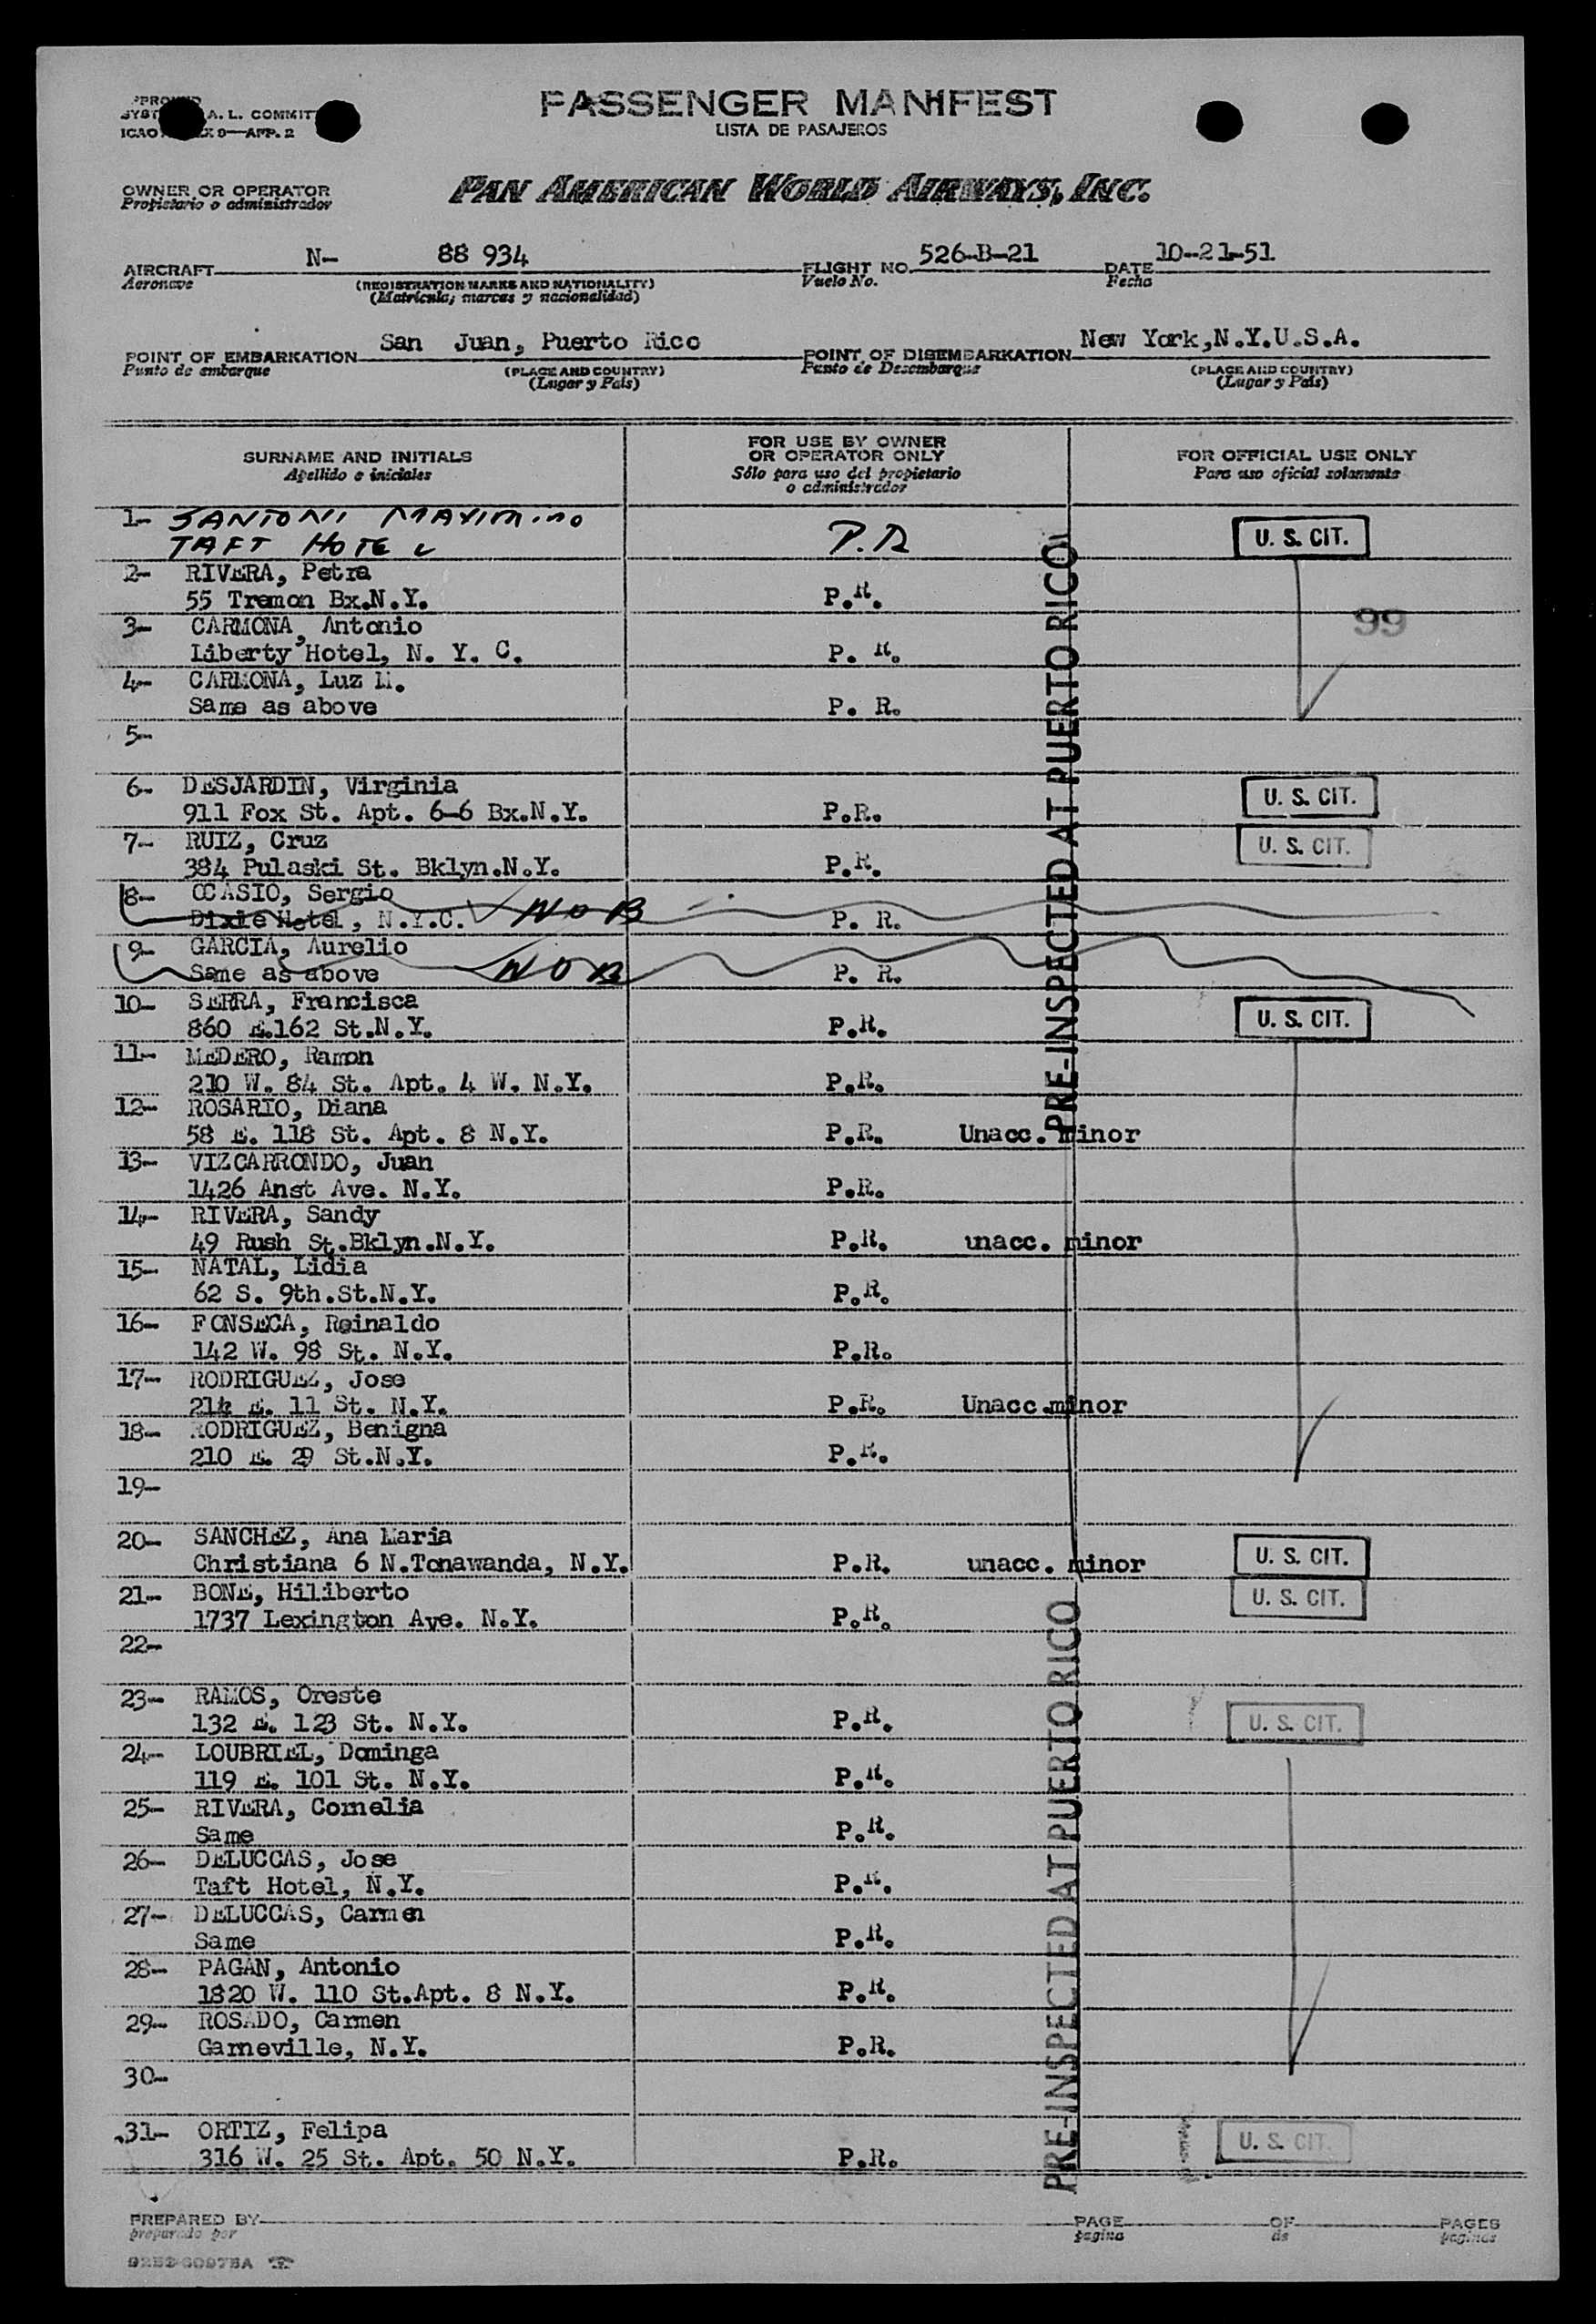 PASSENGER MANIFEST
LISTA DE PASAJEROS
A. L. COMMIT
ICAO 9—APP. 2
OWNER OR OPERATOR
Propietario o administrador
PAN AMERICAN WORLD AIRWAYS, INC.
AIRCRAFT N- 88 934 FLIGHT NO. 526-B-21 DATE 10-21-51
Aeronave (REGISTRATION MARKS AND NATIONALITY) Vuelo No. Fecha
(Matrícula; marcas y nacionalidad)
POINT OF EMBARKATION San Juan, Puerto Rico POINT OF DISEMBARKATION New York,N.Y.U.S.A.
Punto de embarque (PLACE AND COUNTRY) Punto de Desembarque (PLACE AND COUNTRY)
(Lugar y País) (Lugar y País)
SURNAME AND INITIALS FOR USE BY OWNER OR OPERATOR ONLY FOR OFFICIAL USE ONLY
Apellido e iniciales Sólo para uso del propietario o administrador Para uso oficial solamente
1- SANTONI MAXIMINO
TAFT HOTEL P.R U. S. CIT.
2- RIVERA, Petra
55 Tremon Bx.N.Y. P.R.
3- CARMONA, Antonio 99
Liberty Hotel, N. Y. C. P. R.
4- CARMONA, Luz M.
Same as above P. R.
5-
6- DESJARDIN, Virginia
911 Fox St. Apt. 6-6 Bx.N.Y. P.R. U. S. CIT.
7- RUIZ, Cruz
384 Pulaski St. Bklyn.N.Y. P.R. U. S. CIT.
8- OCASIO, Sergio
Dixie Hotel, N.Y.C. NOB P. R.
9- GARCIA, Aurelio
Same as above NOB P. R.
10- SERRA, Francisca
860 E.162 St.N.Y. P.R. U. S. CIT.
11- MEDERO, Ramon
210 W. 84 St. Apt. 4 W. N.Y. P.R.
12- ROSARIO, Diana
58 E. 118 St. Apt. 8 N.Y. P.R. Unacc. minor
13- VIZCARRONDO, Juan
1426 Anst Ave. N.Y. P.R.
14- RIVERA, Sandy
49 Rush St.Bklyn.N.Y. P.R. unacc. minor
15- NATAL, Lidia
62 S. 9th.St.N.Y. P.R.
16- FONSECA, Reinaldo
142 W. 98 St. N.Y. P.R.
17- RODRIGUEZ, Jose
214 E. 11 St. N.Y. P.R. Unacc.minor
18- RODRIGUEZ, Benigna
210 E. 29 St.N.Y. P.R.
19-
20- SANCHEZ, Ana Maria
Christiana 6 N.Tonawanda, N.Y. P.R. unacc. minor U. S. CIT.
21- BONE, Hiliberto
1737 Lexington Ave. N.Y. P.R. U. S. CIT.
22-
23- RAMOS, Oreste
132 E. 123 St. N.Y. P.R. U. S. CIT.
24- LOUBRIEL, Dominga
119 E. 101 St. N.Y. P.R.
25- RIVERA, Cornelia
Same P.R.
26- DELUCCAS, Jose
Taft Hotel, N.Y. P.R.
27- DELUCCAS, Carmen
Same P.R.
28- PAGAN, Antonio
1820 W. 110 St.Apt. 8 N.Y. P.R.
29- ROSADO, Carmen
Garneville, N.Y. P.R.
30-
31- ORTIZ, Felipa
316 W. 25 St. Apt. 50 N.Y. P.R. U. S. CIT.
PRE-INSPECTED AT PUERTO RICO
PRE-INSPECTED AT PUERTO RICO
PREPARED BY PAGE OF PAGES
preparado por pagina de paginas